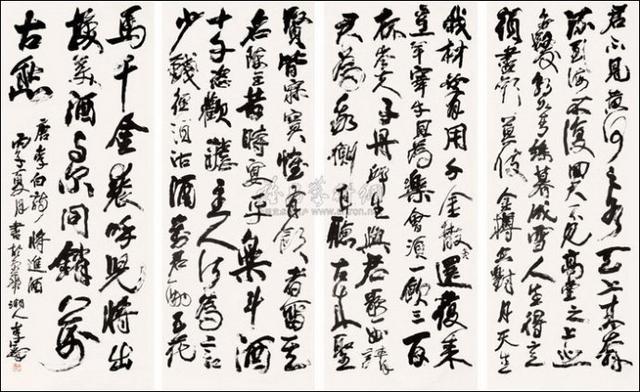 君不見黃河之水天上來奔
流到海不復回又不見高堂之上悲
白髮朝如青絲暮成雪人生得意
須盡歡莫使金樽空對月天生
我材必有用千金散盡還復來
烹羊宰牛且為樂會須一飲三百
杯岑夫子丹邱生與君歌一曲請
君為我側耳聽古來聖
賢皆寂寞惟有飲者留其
名陳王昔時宴平樂斗酒
十千恣歡謔主人何為言
少錢徑須沽酒對君酌五花
馬千金裘呼兒將出
換美酒與爾同銷萬
古愁
唐李白詩將進酒
丙子夏月書於